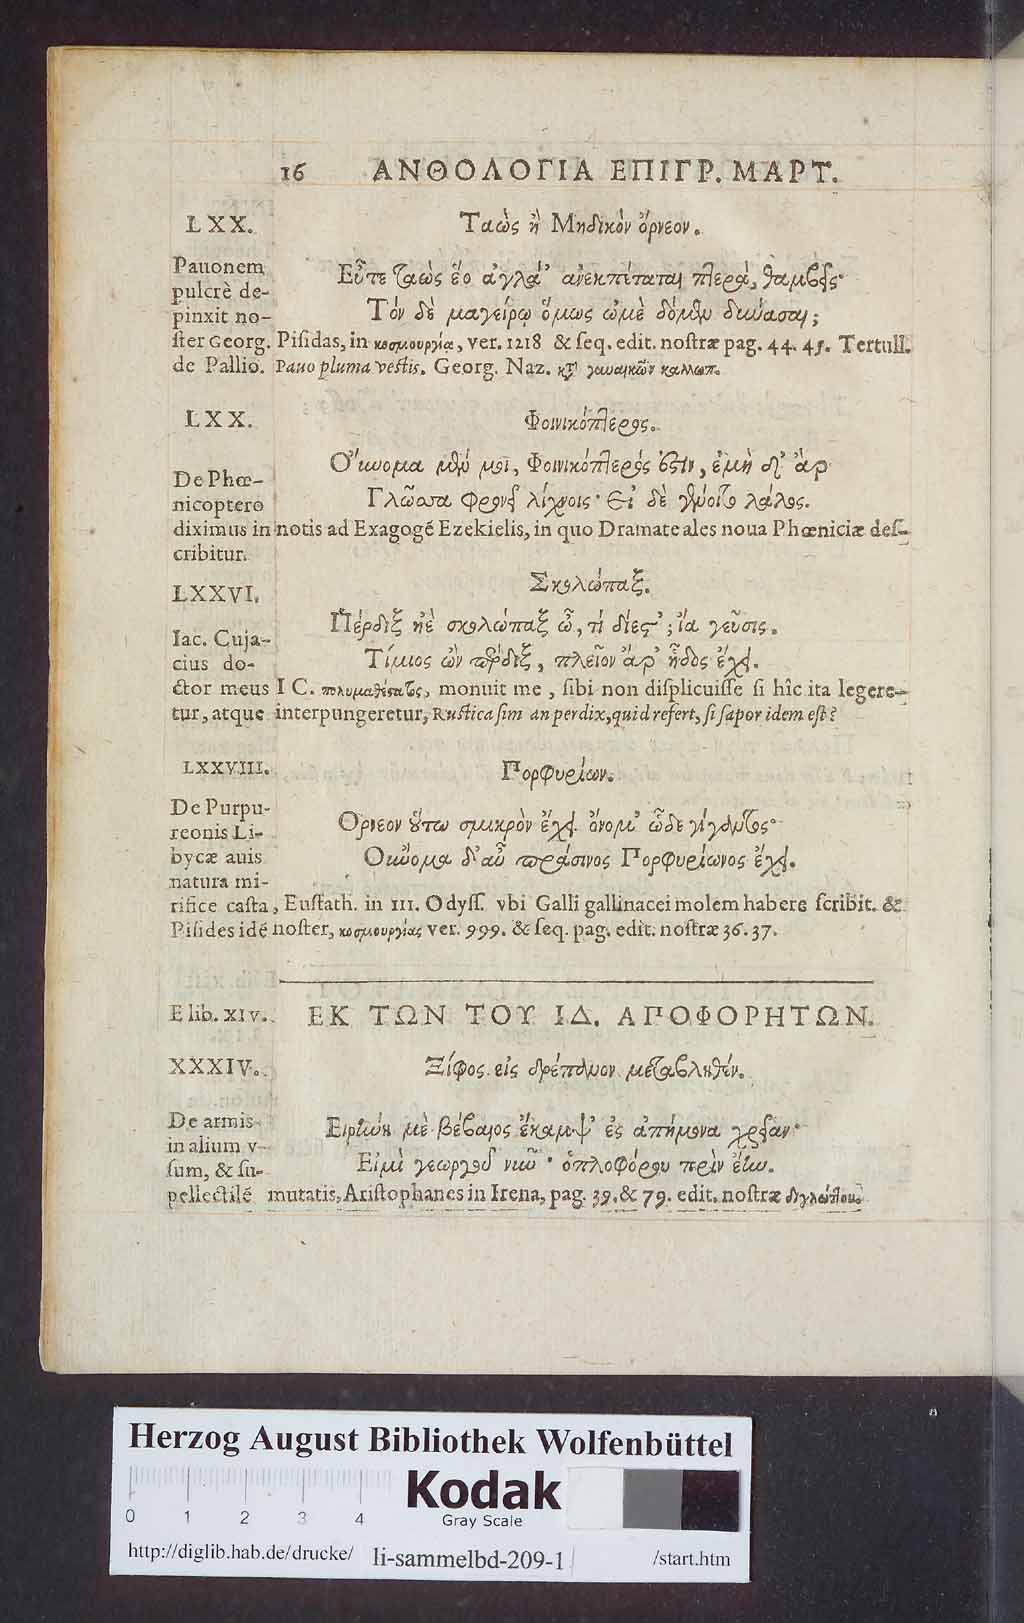 16 ΑΝΘΟΛΟΓΙΑ ΕΠΙΓΡ. ΜΑΡΤ.
LXX. Ταὼς ἢ Μηδικὸν ὄρνεον.
Pauonem Εὖτε ταὼς ἕο ἀγλά' ἀνεκπέταται πτερὰ, θαμβεῖς·
pulcrè de-
pinxit no- Τόν δὲ μαγείρῳ ὅμως ὠμὲ δόμεν δύνασαι;
ster Georg. Pisidas, in κοσμουργία, ver. 1218 & seq. edit. nostræ pag. 44. 45. Tertull.
de Pallio. Pauo pluma vestis. Georg. Naz. κτ' γυναικῶν καλλωπ.
LXX. Φοινικόπτερος.
Οὔνομα μὲν μοι, Φοινικόπτερός ἐστιν, ἐμὴ δ' ἂρ
De Phœ-
nicoptero Γλῶσσα φρονεῖ λίχνοις· Εἰ δὲ γένοιτο λάλος.
diximus in notis ad Exagogé Ezekielis, in quo Dramate ales noua Phœniciæ des-
cribitur.
LXXVI. Σκολώπαξ.
Πέρδιξ ἠὲ σκολώπαξ ὦ, τί δίες; ἴα γεῦσις.
Iac. Cuja-
cius do- Τίμιος ὢν πέρδιξ, πλεῖον ἄρ' ἦδος ἔχει.
ctor meus I C. πολυμαθέστατος, monuit me, sibi non displicuisse si hîc ita legere-
tur, atque interpungeretur, Rustica sim an perdix, quid refert, si sapor idem est?
LXXVIII. Πορφυρίων.
De Purpu- Ὄρνεον οὕτω σμικρὸν ἔχει ὄνομ' ὧδε γίγαντος·
reonis Li-
bycæ auis Οὔνομα δ' αὖ πράσινος Πορφυρίωνος ἔχει.
natura mi-
rifice casta, Eustath. in III. Odyss. vbi Galli gallinacei molem habere scribit. &
Pisides idé noster, κοσμουργίας ver. 999. & seq. pag. edit. nostræ 36. 37.
E lib. XIV. ΕΚ ΤΩΝ ΤΟΥ ΙΔ. ΑΠΟΦΟΡΗΤΩΝ.
XXXIV. Ξίφος εἰς δρέπανον μεταβληθέν.
De armis Εἰρήνη μὲ βέβαιος ἔκαμψ' ἐς ἀπήμονα χρείαν·
in alium v-
sum, & su- Εἰμὶ γεωργοῦ νῦν· ὁπλοφόρου πρὶν ἔην.
pellectilé mutatis, Aristophanes in Irena, pag. 39. & 79. edit. nostræ διγλώττου.
Herzog August Bibliothek Wolfenbüttel
Kodak
0 1 2 3 4 Gray Scale
http://diglib.hab.de/drucke/ li-sammelbd-209-1 /start.htm